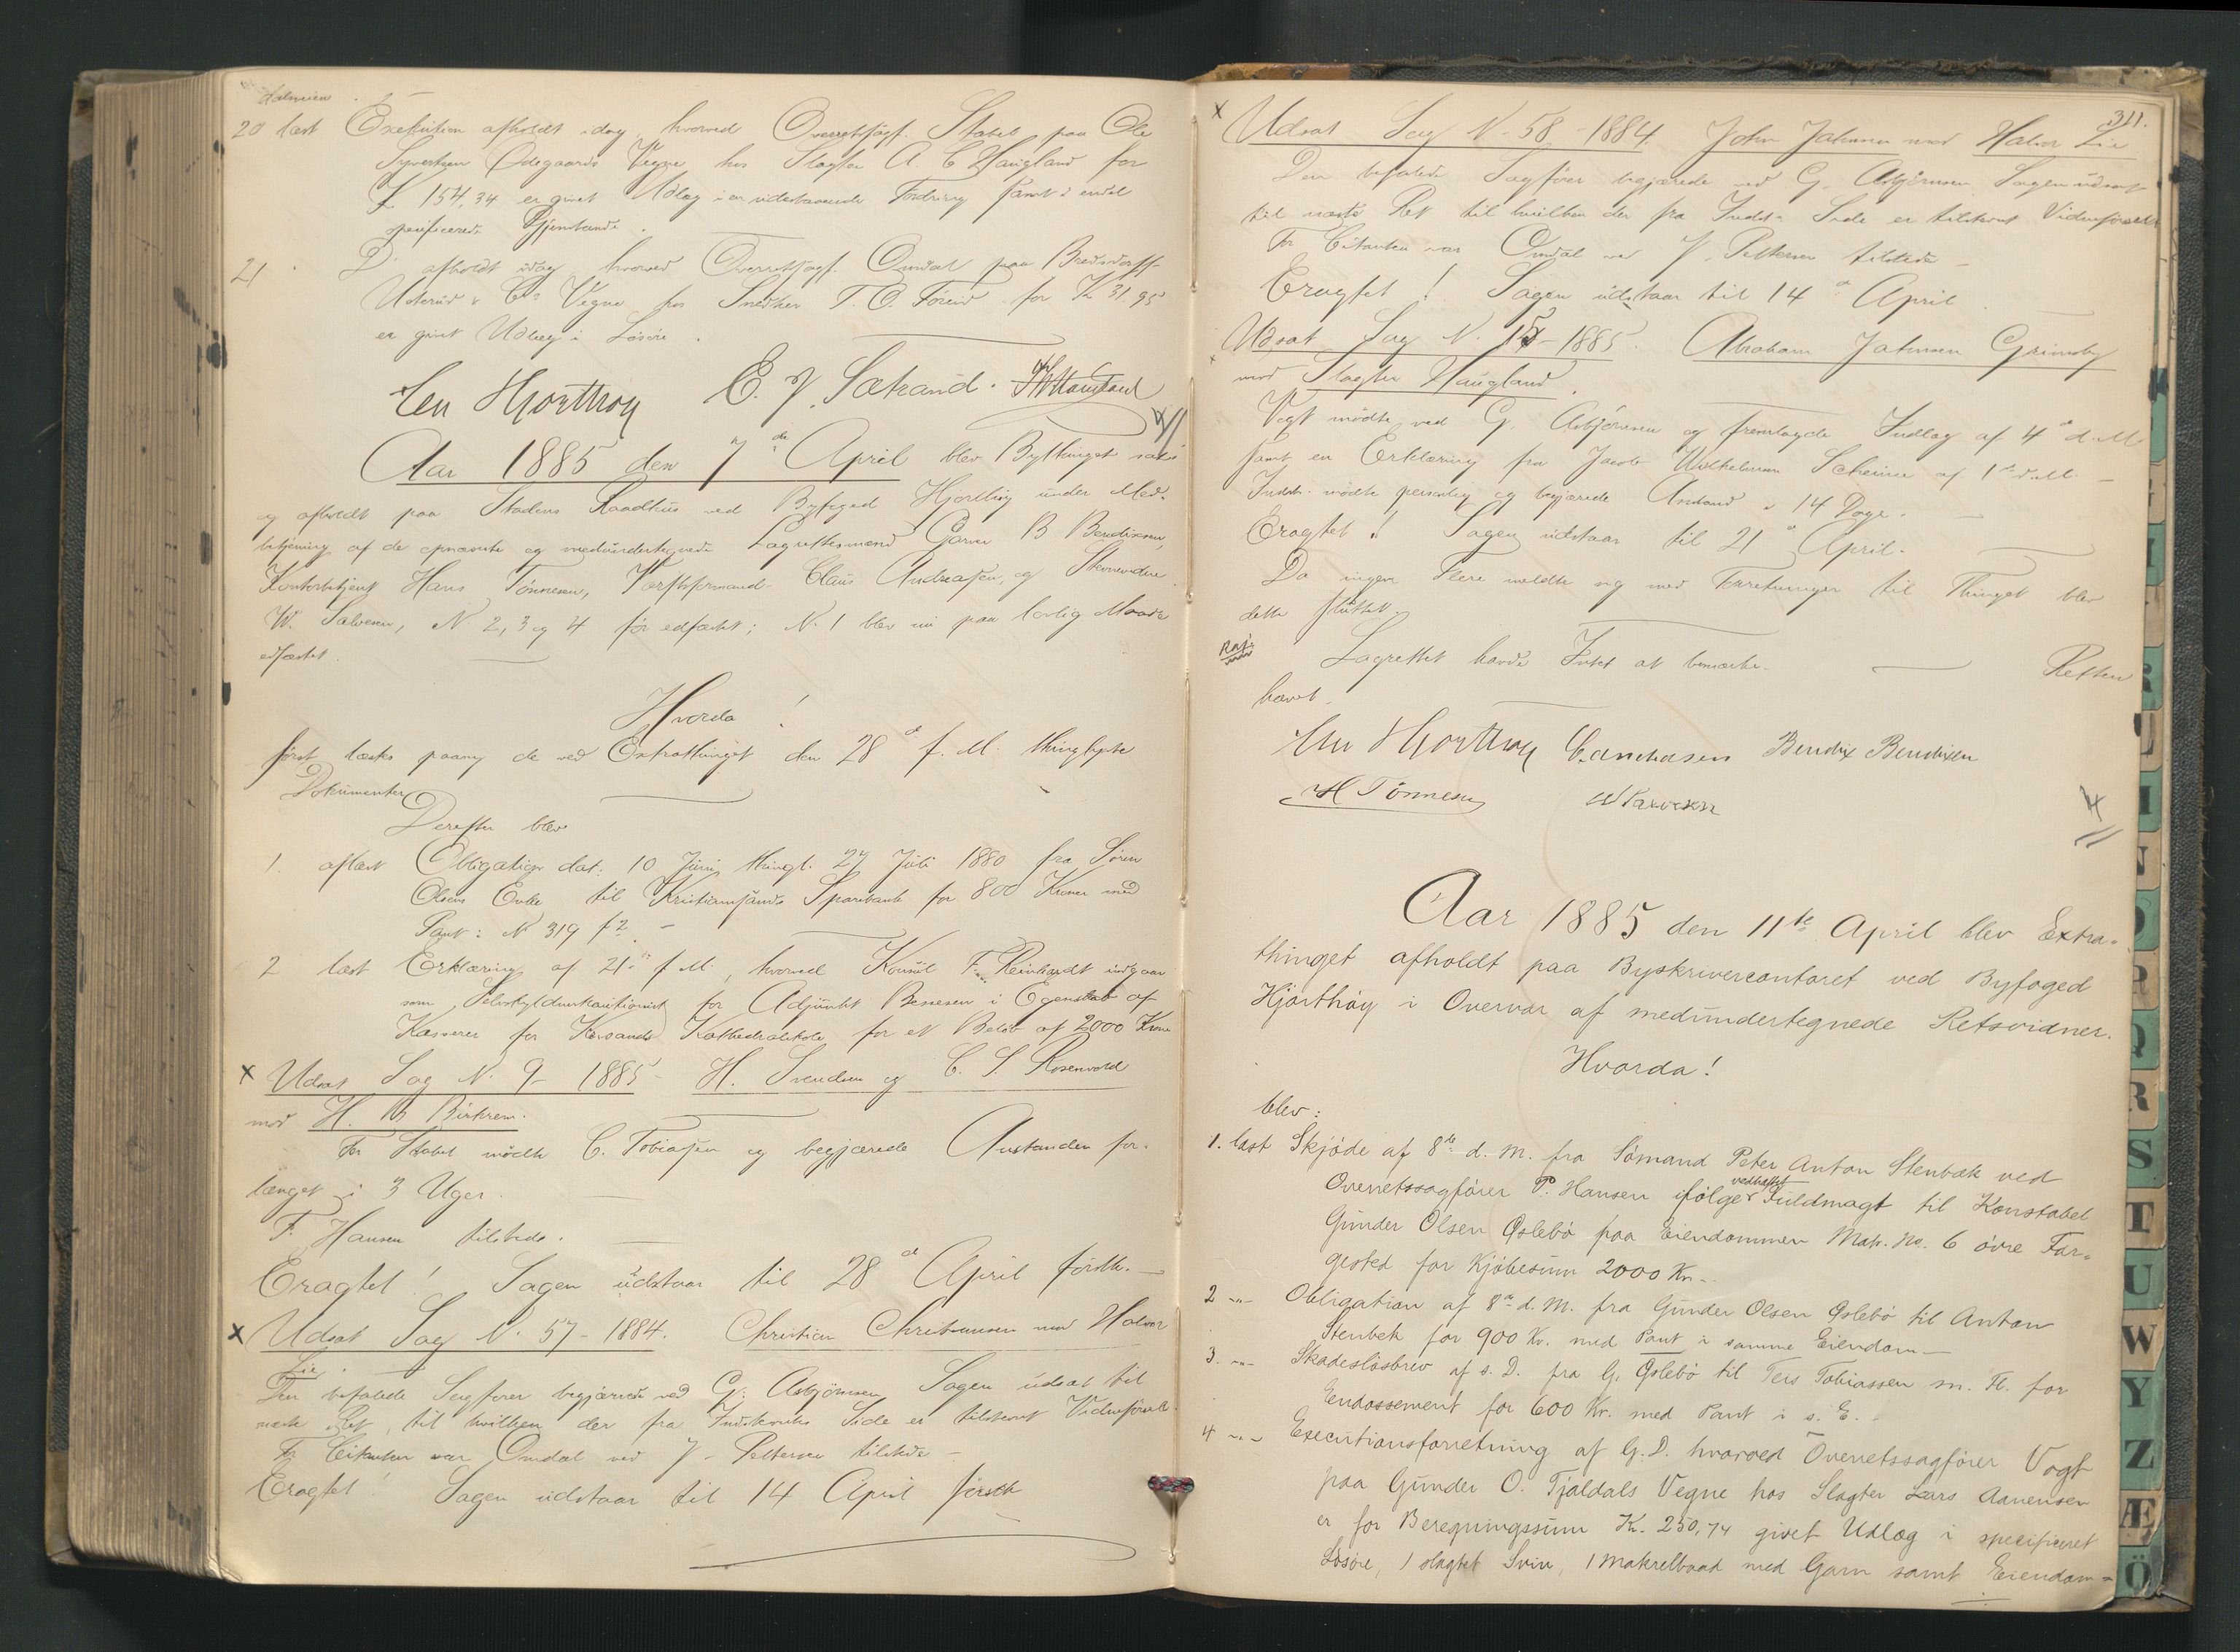 20 læst Exekution afholdt idag hvorved Overretssagf. Stabel paa Ole
Syvertsen Ødegaards Vegne hos Slagter A C Haugland for
154,34 er givet Udlæg i en udestaaende Fordring samt i endel
specificerede Gjenstande.
21. Do afholdt idag hvorved Overretssagf. Omdal paa
Vegne hos Snedker T. O. for Kr 31.95
er givet Udlæg i Løsøre.
Hjorthøy E. J. Sætrand.
Aar 1885 den 7de April blev Bythinget sat
og afholdt paa Stadens Raadhus ved Byfoged Hjorthøy under Med-
betjening af de opnævnte og medundertegnede Lagrettesmænd Garver B Bendixsen,
Kontorbetjent Hans Tønnesen, Værftsformand Claus Andreasen, og
W. Salvesen, N. 2, 3 og 4 før edfæstet; N. 1 blev nu paa lovlig Maade
edfæstet.
Hvorda!
først læstes paany de ved Extrathinget den 28de f. M. thinglyste
Dokumenter
Derefter blev
1. aflæst Obligation dat. 10 Juni thingl. 27 Juli 1880 fra Søren
Olsens Enke til Kristianssands Sparebank for 800 Kroner med
Pant: N 319
2 læst Erklæring af 21. f. M., hvorved Konsul F. Reinhardt indgaar
som Selvskyldnerkautionist for Adjunkt i Egenskab af
Kasserer for Krsands Kathedralskole for et Beløb af 2000 Kroner
x Udsat Sag N. 9 - 1885 H. Svendsen og C. S. Rosenvold
mod H. Birkrem.
For Stabel mødte C. Tobiasen og begjærede Anstanden for-
længet i 3 Uger.
F. Hansen tilstede.
Eragtet! Sagen udstaar til 28de April førstk.
x Udsat Sag N. 57 - 1884. Christian Christiansen mod Halvor
Lie.
Den befalede Sagfører begjærede ved G. Asbjørnsen Sagen udsat til
næste Ret, til hvilken der fra Indstevntes Side er tilstevnt Vidneførsel.
For Citanten var Omdal ved J. Pettersen tilstede
Eragtet! Sagen udstaar til 14 April førstk
311.
x Udsat Sag N. 58 - 1884. John Johnsen mod Halvor Lie
Den befalede Sagfører begjærede ved G. Asbjørnsen Sagen udsat
til næste Ret til hvilken der fra Indst. Side er tilstevnt Vidneførsel
For Citanten var Omdal ved J. Pettersen tilstede
Eragtet! Sagen udstaar til 14de April
x Udsat Sag N. 15 - 1885. Abraham Johnsen Grimsby
mod Slagter Haugland.
Vogt mødte ved G. Asbjørnsen og fremlagde Indlæg af 4de d. M.
samt en Erklæring fra Jacob Wilhelmsen af 1ste d. M.
Indst. mødte personlig og begjærede Anstand i 14 Dage.
Eragtet! Sagen udstaar til 21de April.
Da ingen Flere meldte sig med Forretninger til Thinget blev
dette sluttet.
Lagrettet havde Intet at bemærke. Retten
hævet.
Hjorthøy C. Andreasen Bendix Bendixsen
H Tønnesen W Salvesen
Aar 1885 den 11te April blev Extra-
thinget afholdt paa Byskrivercontoret ved Byfoged
Hjorthøy i Overvær af medundertegnede Retsvidner.
Hvorda!
blev:
1. læst Skjøde af 8de d. M. fra Sømand Peter Anton Stenbæk ved
Overretssagfører P. Hansen ifølge vedhæftet Fuldmagt til Konstabel
Gunder Olsen Oslebø paa Eiendommen Matr. No. 6 øvre Far-
gested for Kjøbesum 2000 Kr.
2 -"- Obligation af 8de d. M. fra Gunder Olsen Oslebø til Anton
Stenbek for 900 Kr. med Pant i samme Eiendom
3. -"- Skadesløsbrev af s. D. fra G. Oslebø til Terje Tobiassen m. Fl. for
Endossement for 600 Kr. med Pant i s. E.
4 -"- Executionsforretning af G. D. hvorved Overretssagfører Vogt
paa Gunder O. Tjaldals Vegne hos Slagter Lars Aanensen
er for Beregningssum Kr. 250,74 givet Udlæg i specificeret
Løsøre, 1 slagtet Svin, 1 Makrelbaad med Garn samt Eiendom-
R
N
O
P
Q
R
S
T
U
W
Y
Z
Æ
Ö